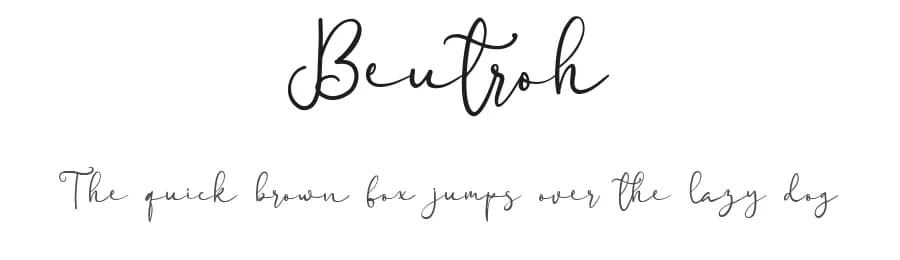 Beutroh
The quick brown fox jumps over the lazy dog